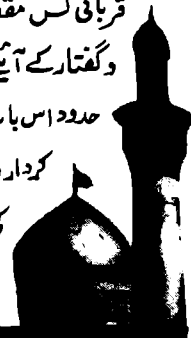 قربانی کس مقا
و گفتار کے آئے
حدود اس بات
کردار